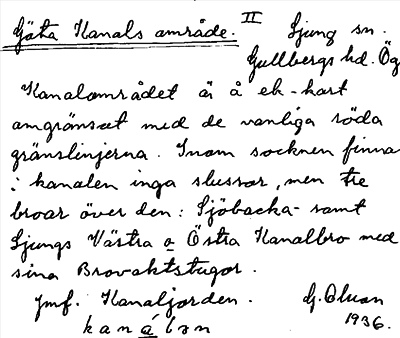 Göta Kanals område. II Ljung sn.
Gullbergs hd. Ög
Kanalområdet är å ek-kart
omgränsat med de vanliga röda
gränslinjerna. Inom socknen finna
i kanalen inga slussar, men tre
broar över den: Sjöbacka- samt
Ljungs Västra o Östra Kanalbro med
sina Brovaktstugor.
Jmf. Kanaljorden. G. Olson
kanálən 1936.